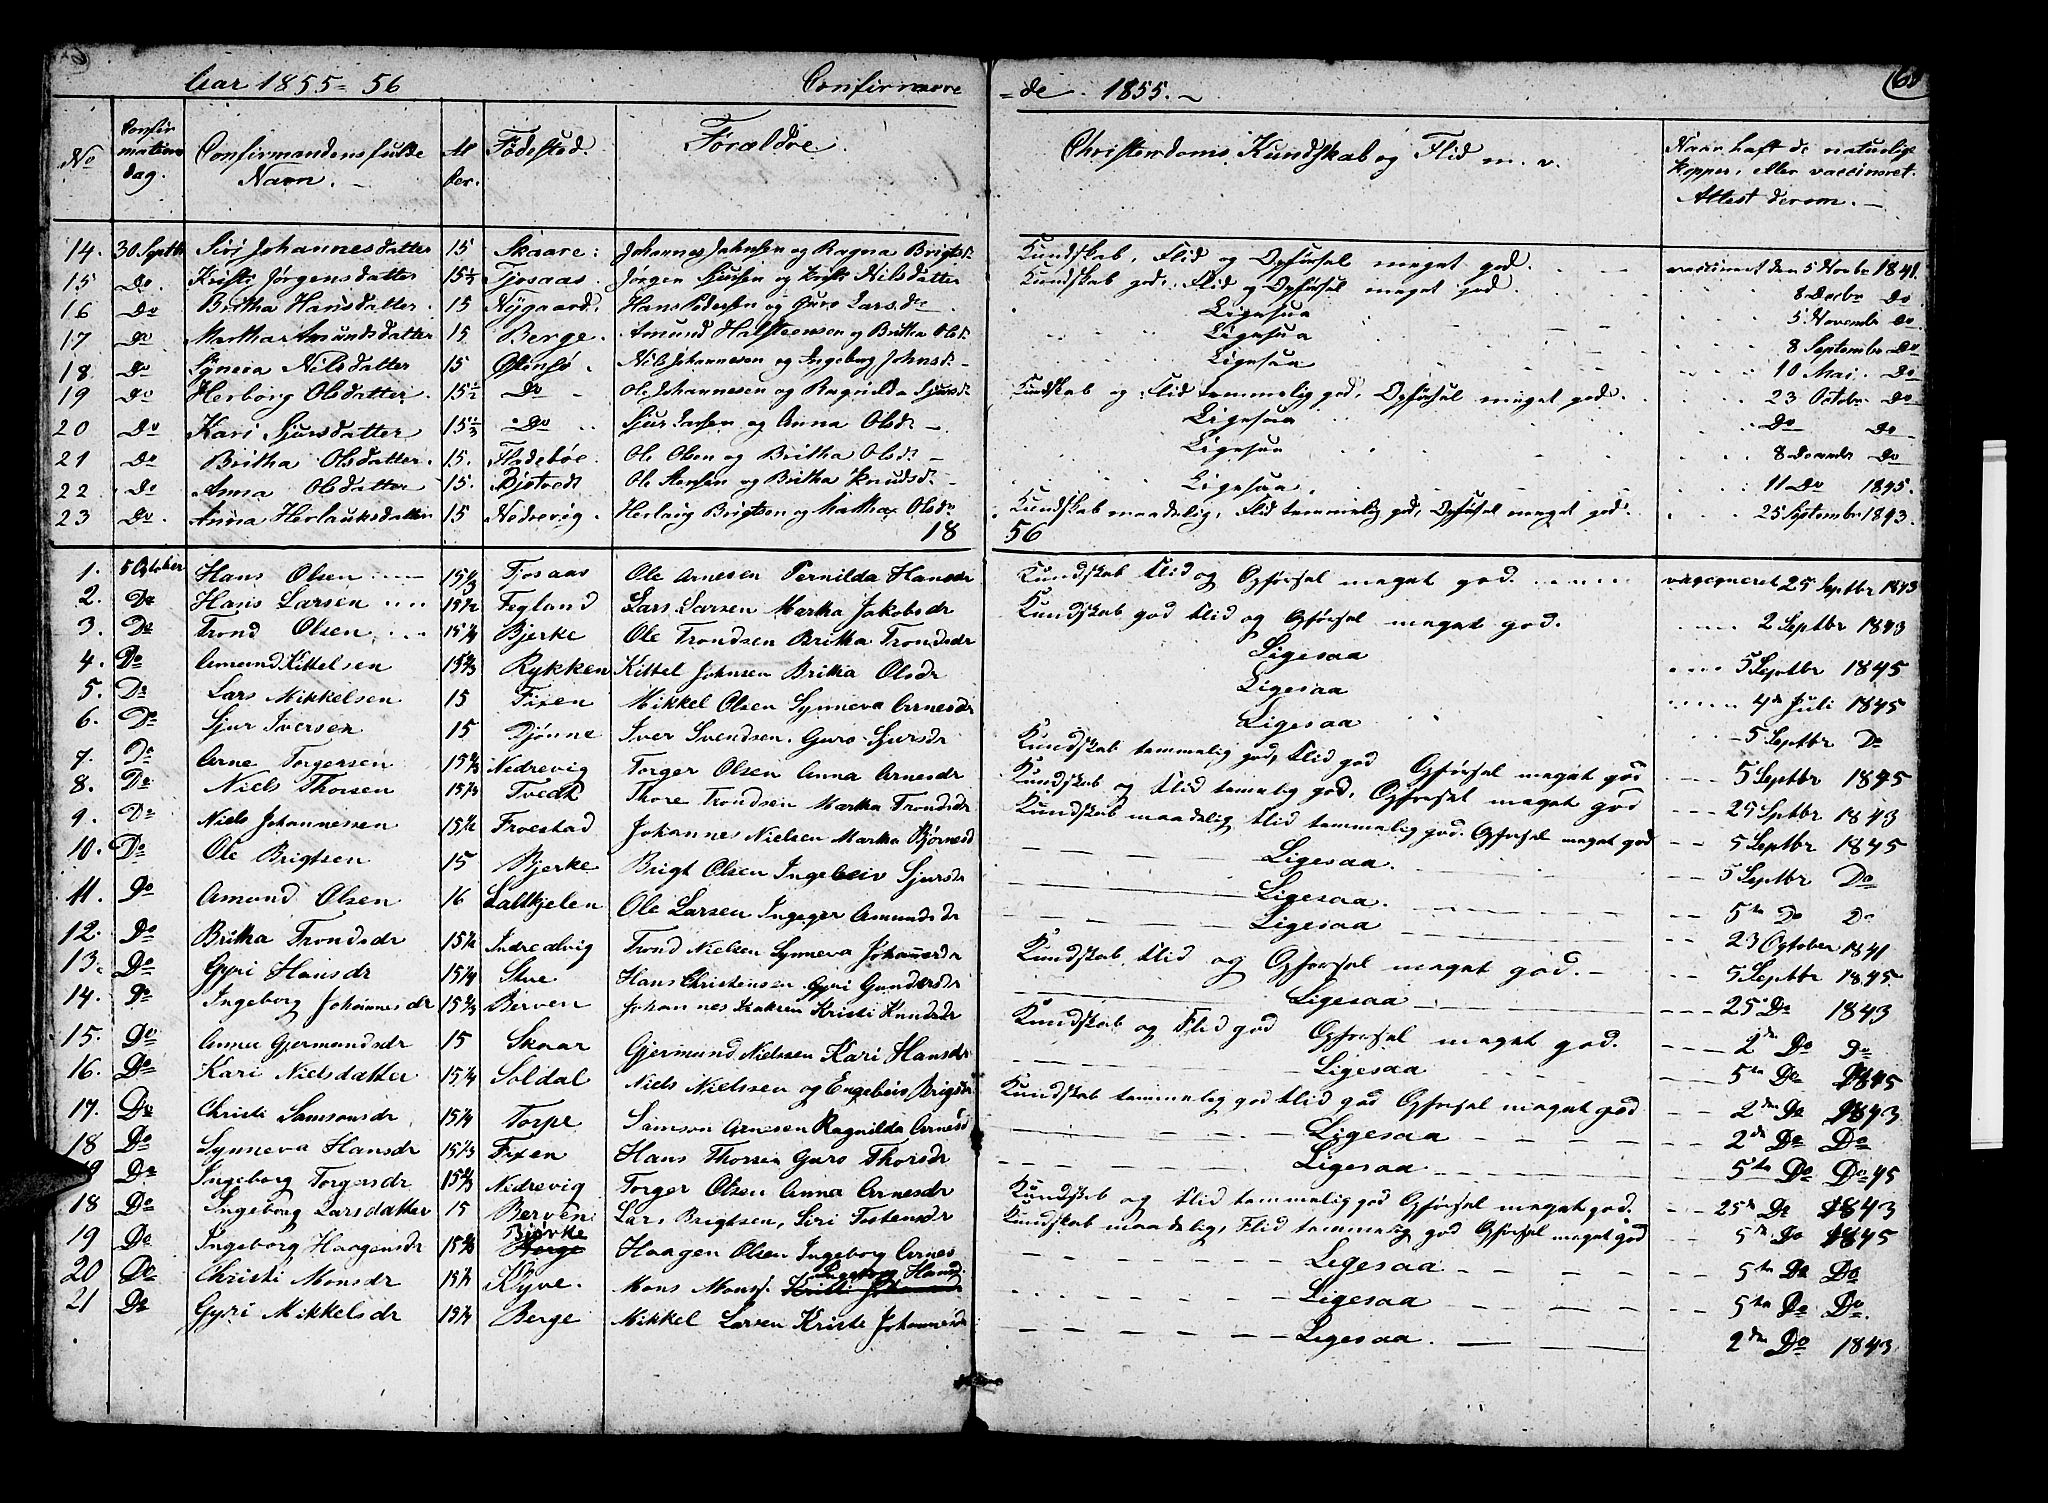 Aar 1855=56 Confirmere =de 1855. 60
No Confirmations dag. Confirmandens fulde Navn. Alder. Fødested. Forældre. Christendoms Kundskab og Flid m. v. Naar haft de naturlige Kopper, eller vaccineret. Attest derom.
14. 30 Septbr Siri Johannesdatter 15 Skaare: Johannes Johnsen og Ragna Brigtsd. Kundskab, Flid og Opførsel meget god. vaccineret den 5 Novbr 1841.
15 Do. Kristi Jørgensdatter 15½ Tjosaas. Jørgen Sjursen og Kristi Nilsdatter Kundskab god, Flid og Opførsel meget god. 8 Decbr Do.
16 Do Britha Hansdatter. 15 Nygaard. Hans Pedersen og Guro Larsdr Ligesaa 5 Novembr Do.
17 Do Martha Amundsdatter 15 Berge. Amund Halsteensen og Britha Olsd. Ligesaa 8 Septembr Do
18 Do Syneva Nilsdatter 15 Nils Johannesen og Ingeborg Johnsd. Ligesaa 10 Mai. Do
19 Do Herborg Olsdatter. 15½ Do Ole Johannesen og Ragnilda Sjursd. Kundskab og Flid temmelig god, Opførsel meget god. 23 Octobr Do
20 Do Kari Sjursdatter Do Sjur Larsen og Anna Olsd. Ligesaa Do Do
21 Do Britha Olsdatter. 15. Fladebøe. Ole Olsen og Britha Olsd. Ligesaa 8 Decembr Do
22 Do Anna Olsdatter 15. Ole Hansen og Britha Knudsd. Ligesaa. 11 Do 1845.
23 Do. Anna Herlauksdatter 15 Nedrevig. Herlaug Brigtsen og Martha Olsdr Kundskab maadelig, Flid temmelig god, Opførsel meget god. 25 Septembr 1843.
18 56
1. 5 October Hans Olsen Tjosaas Ole Arnesen Pernilda Hansdr Kundskab Flid og Opførsel meget god. vaccineret 25 Septbr 1843
2. Do Hans Larsen 15½ Fegland Lars Larsen Martha Jakobsdr Kundskab god Flid og Opførsel meget god. 2 Septbr 1843
3. Do Trond Olsen 15¼ Bjerke Ole Trondsen Britha Trondsdr Ligesaa 5 Septbr 1845
4. Do Amund Kittelsen 15⅔ Rykken Kittel Johnsen Britha Olsdr Ligesaa 4de Juli 1845
5. Do Lars Mikkelsen 15 Fixen Mikkel Olsen Synneva Arnesdr Ligesaa 5 Septbr Do
6. Do Sjur Iversen 15 Djønne Iver Svendsen. Guro Sjursdr Kundskab temmelig god, Flid god Opførsel meget god 5 Septbr 1845
7. Do Arne Torgersen Nedrevig Torger Olsen Anna Arnesdr Kundskab og Flid temmelig god, Opførsel meget god 25 Septbr 1843
8. Do. Niels Thorsen 15¼ Tvedt Thore Trondsen Martha Trondsdr Kundskab maadelig Flid temmelig god. Opførsel meget god 5 Septbr 1845
9. Do Niels Johannessen 15½ Froestad Johannes Nielsen Martha Bjørnesd Ligesaa. 5 Septbr Do
10. Do Ole Brigtsen 15 Bjerke Brigt Olsen Ingebeiv Sjursdr Ligesaa. 5te Do Do
11. Do Amund Olsen 16 Laltkjelen Ole Larsen Ingeger Amundsdr Ligesaa 23 October 1841
12. Do Britha Trondsdr 15½ Indrealvig Trond Nielsen Synneva Johannesdr Kundskab, Flid og Opførsel meget god. 5 Septbr 1845.
13. Do Gyri Hansdr 15¼ Skre Hans Christensen Gyri Gundersdr Ligesaa 25 Do 1843
14. Do Ingeborg Johannesdr Berven Johannes Isaksen Kristi Knudsdr Kundskab og Flid god Opførsel meget god. 2de Do Do
15. Do Anna Gjermundsdr 15 Skaar Gjermund Nielssen Kari Hansdr Ligesaa 5te Do 1845
16. Do Kari Nielsdatter 15¼ Soldal Niels Nielssen og Engebeiv Brigtsdr Kundskab temmelig god Flid god Opførsel meget god 2den Do 1843
17. Do Christi Samsonsdr 15¼ Torpe Samson Arnesen Ragnilda Arnesd Ligesaa 2de Do Do
18 Do Synneva Hansdr 15⅓ Fixen Hans Thorsen Guro Thorsdr Ligesaa 5te Do Do 45
19 Do Ingeborg Torgersdr Nedrevig Torger Olsen Anna Arnesdr Kundskab og Flid temmelig god Opførsel meget god. 25de Do 1843
18 Do Ingeborg Larsdatter 15 Berven Lars Brigtsen, Siri Tostensdr Kundskab maadelig, Flid temmelig god Opførsel meget god 5te Do 1845
19 Do Ingeborg Haagensdr Bjørke Berge Haagen Olsen Ingeborg Arnes Ligesaa 5te Do Do
20 Do Christi Monsdr 15¼ Kyve. Mons Monss. Ingeborg Hansd. Kristi Johannesd Ligesaa 5te Do Do.
21 Do Gyri Mikkelsdr 15¼ Berge Mikkel Larsen Kristi Johannesdr Ligesaa. 2den Do 1843